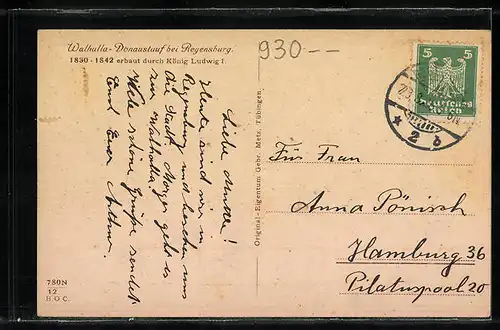 Walhalla-Donaustauf bei Regensburg.
1830-1842 erbaut durch König Ludwig I.
930--
5 5
Deutsches
Reich
* 2 b
Liebe Mutter!
Heute sind wir in
Regensburg und besehen uns
die Stadt. Morgen geht es
zur Walhalla.
Viele schöne Grüße sendet
Euch Euer
Original-Eigentum Gebr. Metz, Tübingen.
Für Frau
Anna Pönisch
Hamburg 36
Pilatuspool 20
780N
12
B.O.C.